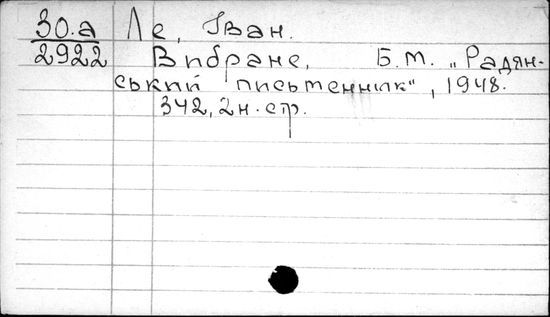 30.а Ле, Іван.
2922 Вибране, Б.М. „Радян-
ський письменник", 1948.
342, 2н. стр.